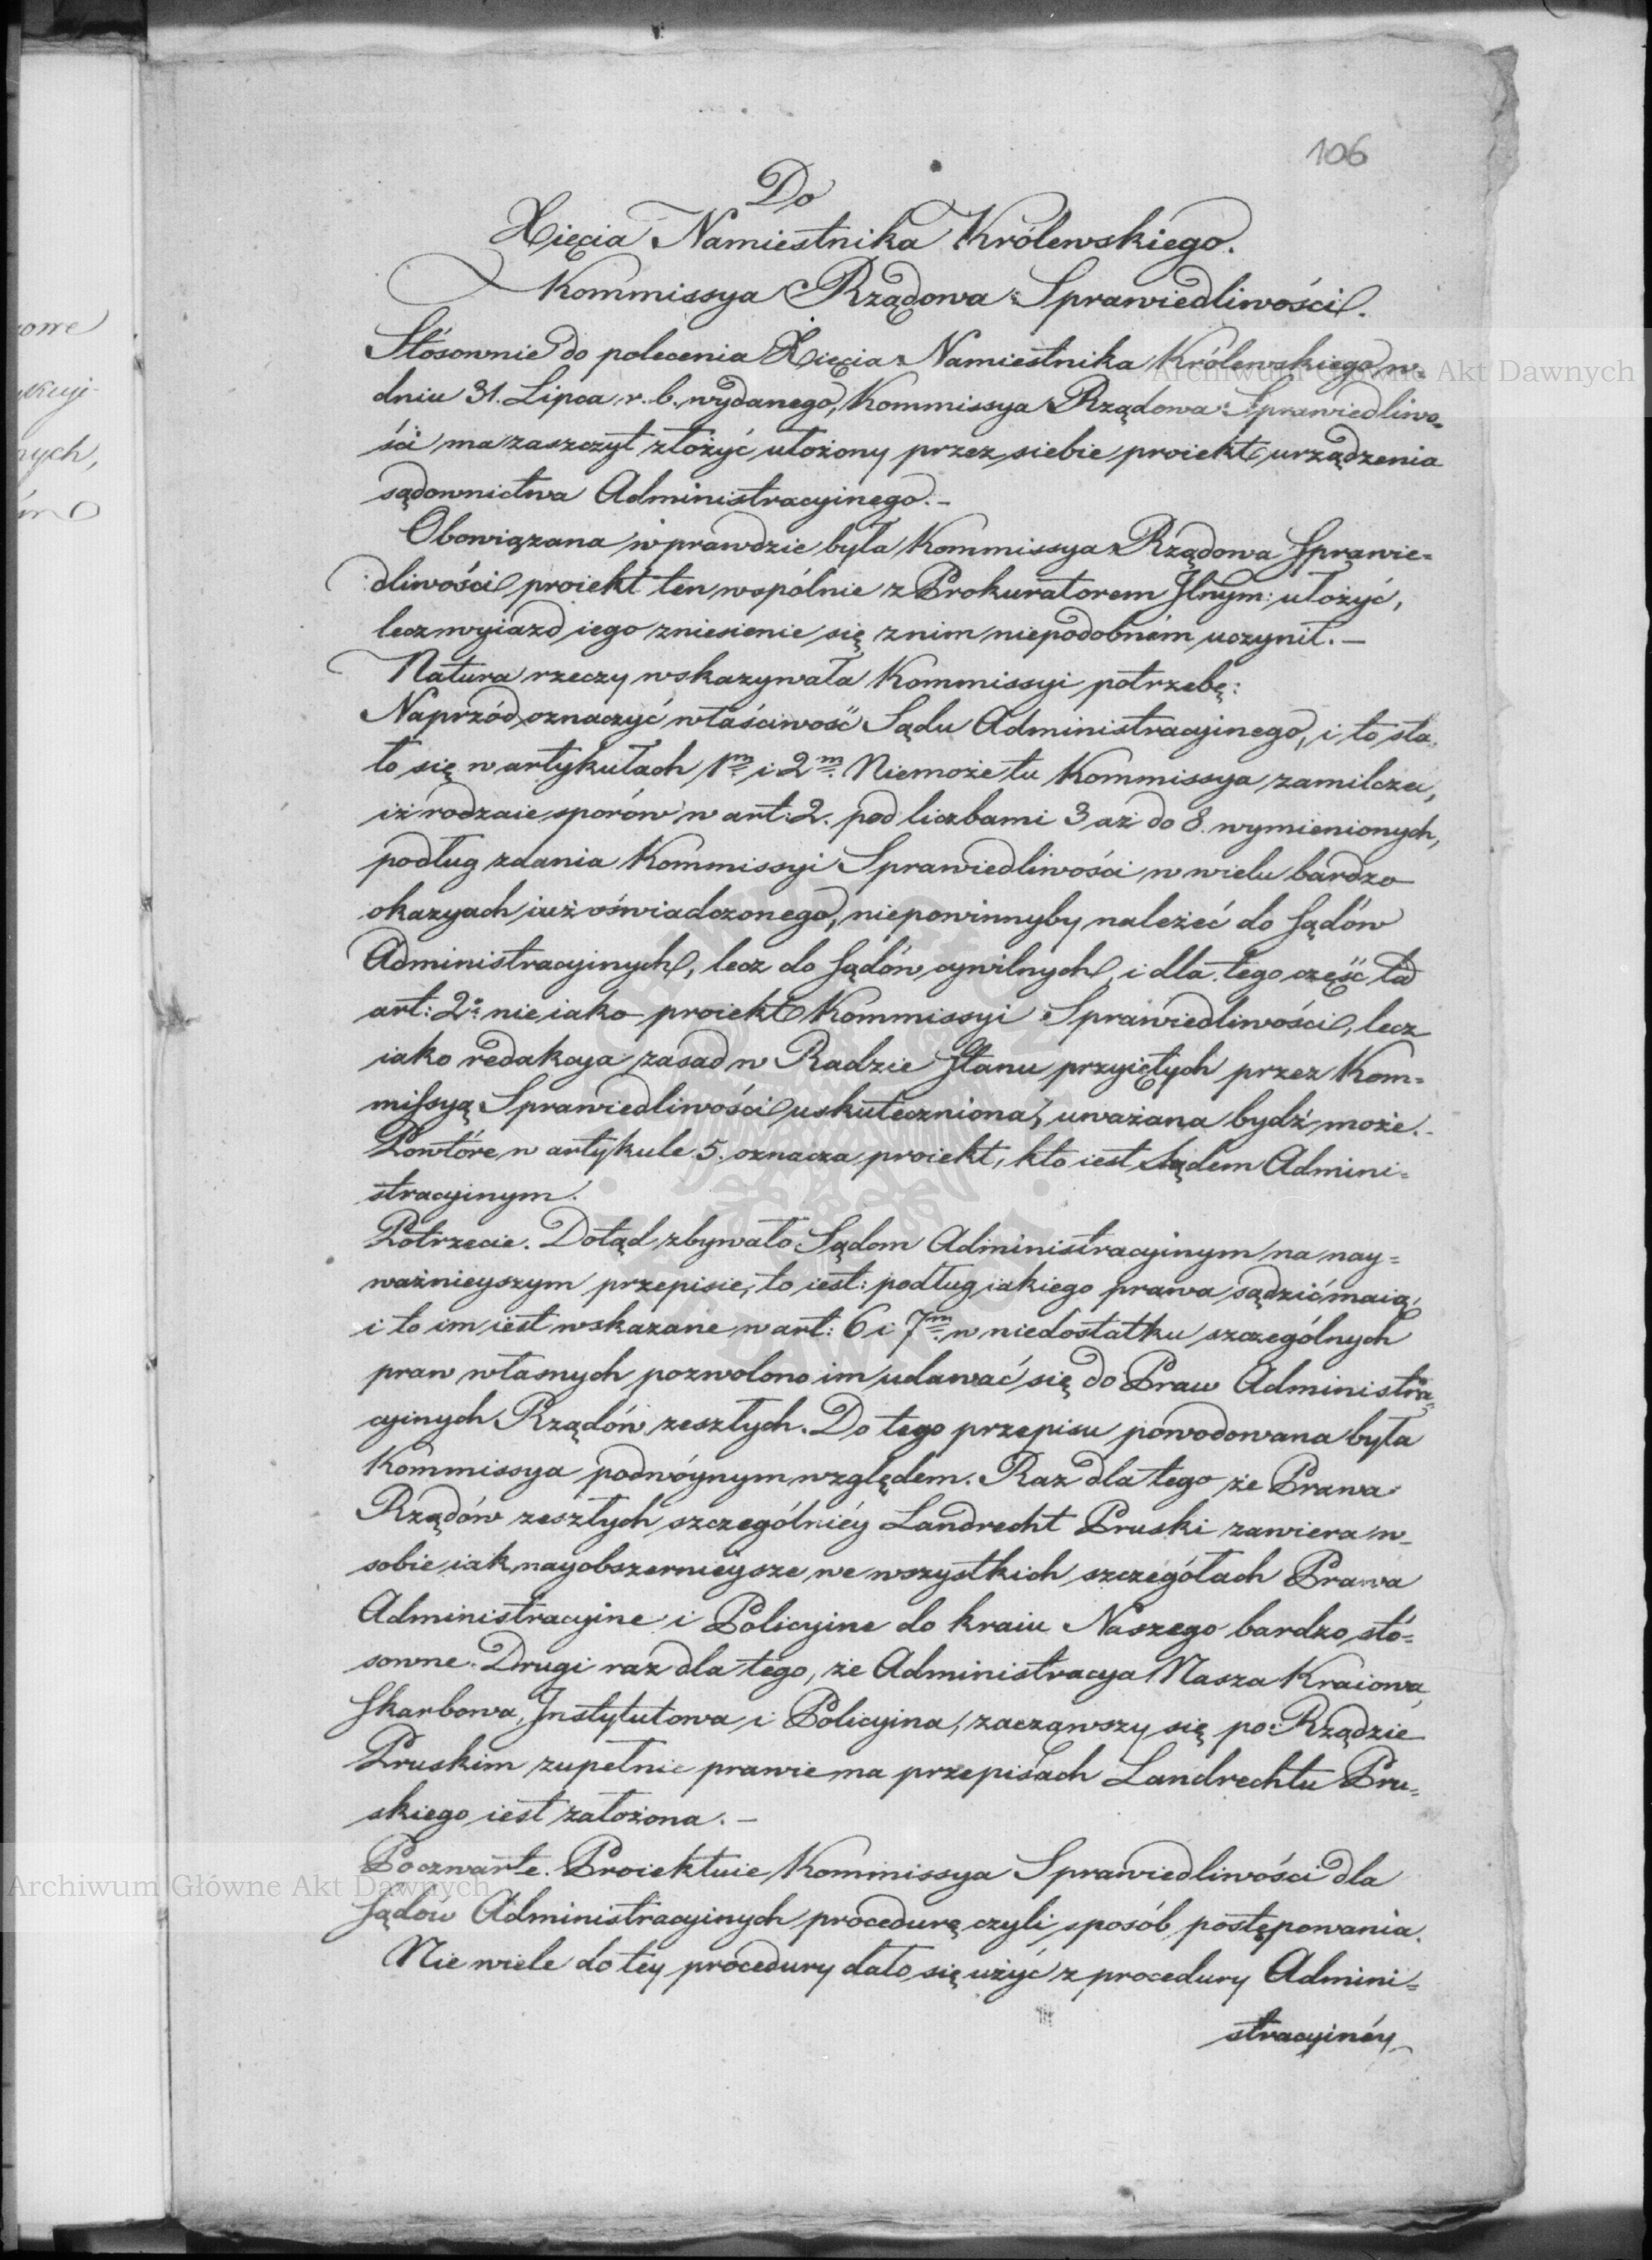 106
Do
Xięcia Namiestnika Królewskiego.
Kommissya Rządowa Sprawiedliwości.
Stósownie do polecenia Xięcia Namiestnika Królewskiego w
dniu 31. Lipca r. b. wydanego, Kommissya Rządowa Sprawiedliwo=
ści ma zaszczyt złożyć ułożony przez siebie proiekt urządzenia
sądownictwa Administracyinego.–
Obowiązana wprawdzie była Kommissya Rządowa Sprawie=
dliwości proiekt ten wspólnie z Prokuratorem Jlnym: ułożyć,
lecz wyiazd iego zniesienie się z nim niepodobném uczynił.–
Natura rzeczy wskazywała Kommissyi potrzebę:
Naprzód oznaczyć właściwość Sądu Administracyinego, i to sta=
ło się w artykułach 1m. i 2m. Niemoże tu Kommissya zamilczeć,
iż rodzaie sporów w art: 2. pod liczbami 3 aż do 8. wymienionych,
podług zdania Kommissyi Sprawiedliwości w wielu bardzo
okazyach iuż oświadczonego, niepowinnyby należeć do Sądów
Administracyinych, lecz do Sądów cywilnych, i dla tego część ta
art: 2o nie iako proiekt Kommissyi Sprawiedliwości, lecz
iako redakcya zasad w Radzie Stanu przyiętych przez Kom=
missyą Sprawiedliwości uskuteczniona, uważana bydź może.–
Powtóre w artykule 5. oznacza proiekt, kto iest Sądem Admini=
stracyinym.
Potrzecie. Dotąd zbywało Sądom Administracyinym na nay=
ważnieyszym przepisie, to iest: podług iakiego prawa sądzić maią,
i to im iest wskazane w art: 6 i 7m. w niedostatku szczególnych
praw własnych pozwolono im udawać się do Praw Administra=
cyinych Rządów zeszłych. Do tego przepisu powodowana była
Kommissya podwóynym względem. Raz dla tego że Prawa
Rządów zeszłych szczególniéy Landrecht Pruski zawiera w
sobie iak nayobszernieysze we wszystkich szczegółach Prawa
Administracyine i Policyine do kraiu Naszego bardzo stó=
sowne. Drugi raz dla tego, że Administracya Nasza Kraiowa,
Skarbowa, Instytutowa i Policyina, zacząwszy się po Rządzie
Pruskim zupełnie prawie na przepisach Landrechtu Pru=
skiego iest założona.–
Poczwarte. Proiektuie Kommissya Sprawiedliwości dla
Sądów Administracyinych procedurę czyli sposób postępowania.
Nie wiele do tey procedury dało się użyć z procedury Admini=
stracyinéy
Archiwum Główne Akt Dawnych
Archiwum Główne Akt Dawnych